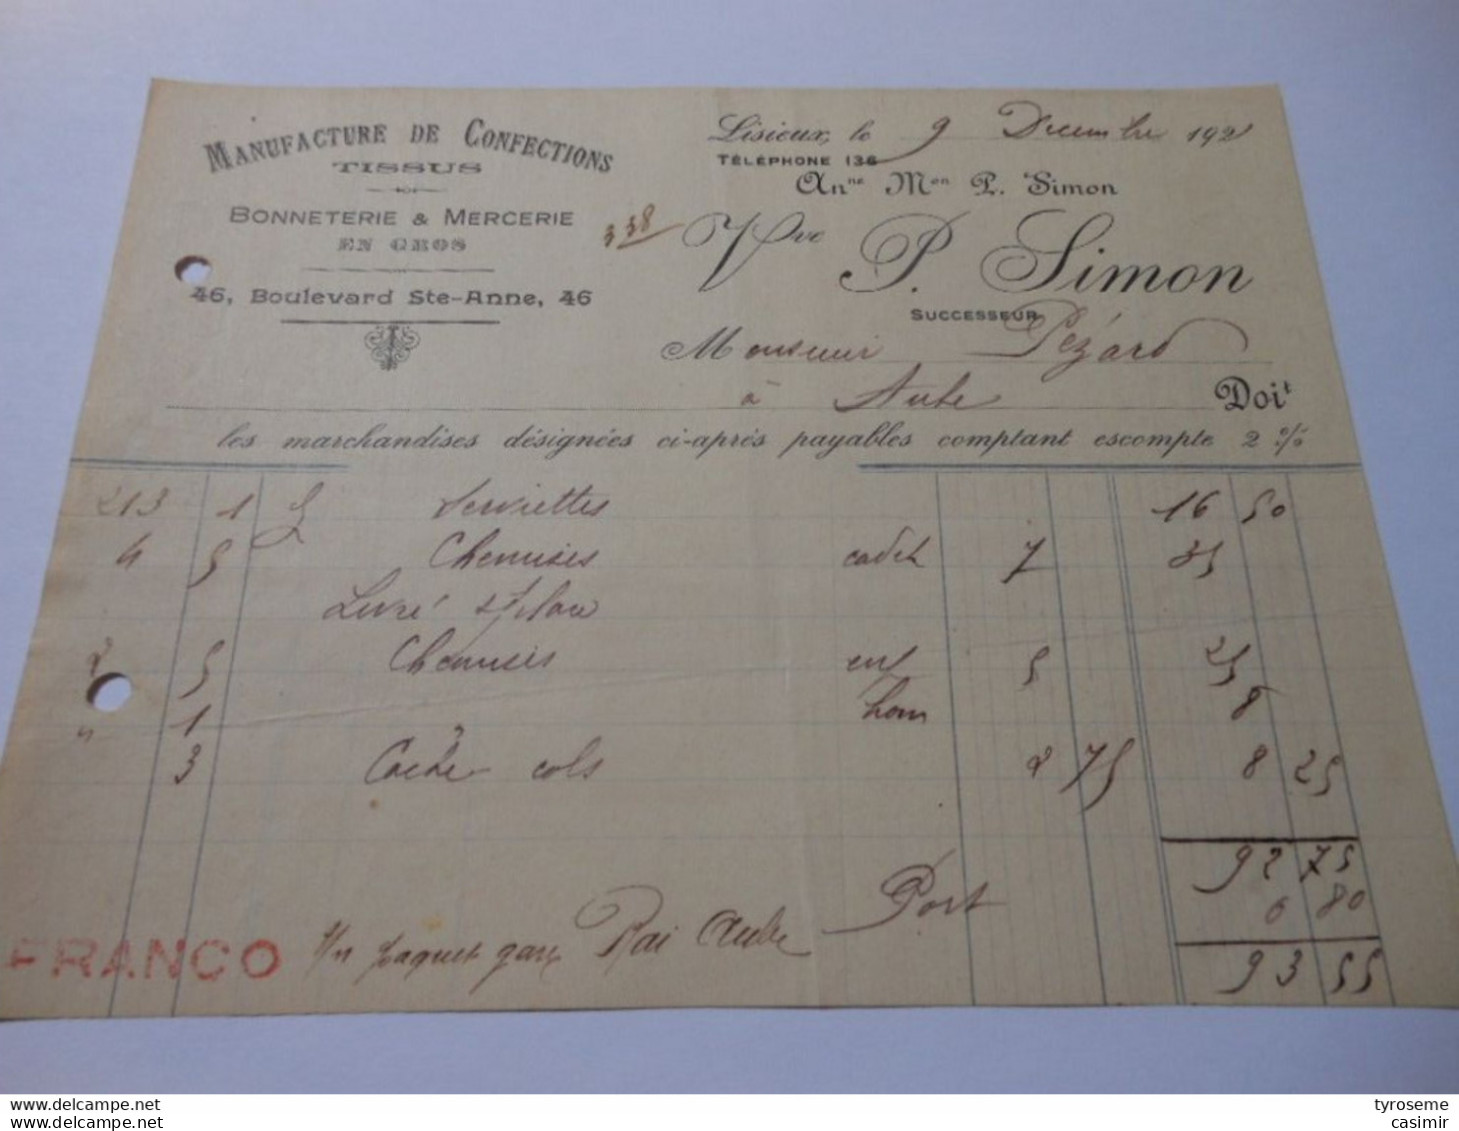 MANUFACTURE DE CONFECTIONS
TISSUS
BONNETERIE & MERCERIE
EN GROS
46, Boulevard Ste-Anne, 46
Lisieux, le 9 Decembre 192
TÉLÉPHONE 136
Anne Mon P. Simon
338
Vve P. Simon
SUCCESSEUR
Monsieur Pézard
à Aube Doit
les marchandises désignées ci-après payables comptant escompte 2 %
213 1 Serviettes 16 50
4 5 Chemises cadet 7 35
Livré
2 5 Chemises enf 5 25
" 1 hom 8
3 Cache cols 2 75 8 25
92 75
Port 0 80
FRANCO Un paquet gare Rai Aube
93 55
Bonneterie en ligne
Bonneterie en ligne
tyroseme
casimir